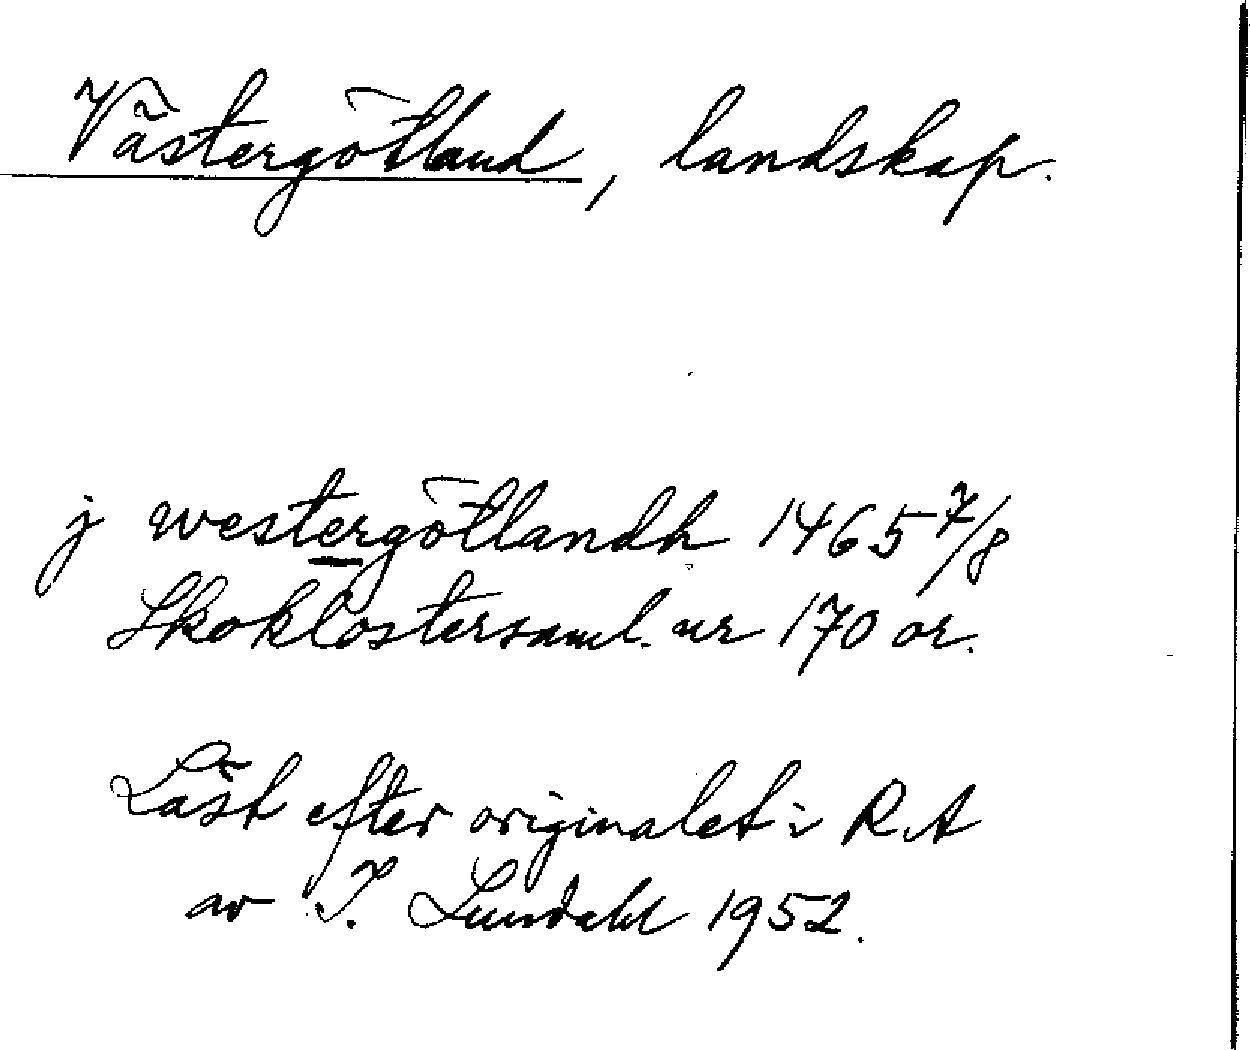 Västergötland, landskap.
j westergötlandh 1465 7/8
Skoklostersaml. nr 170 or.
Läst efter originalet i R.A
av I. Lundahl 1952.